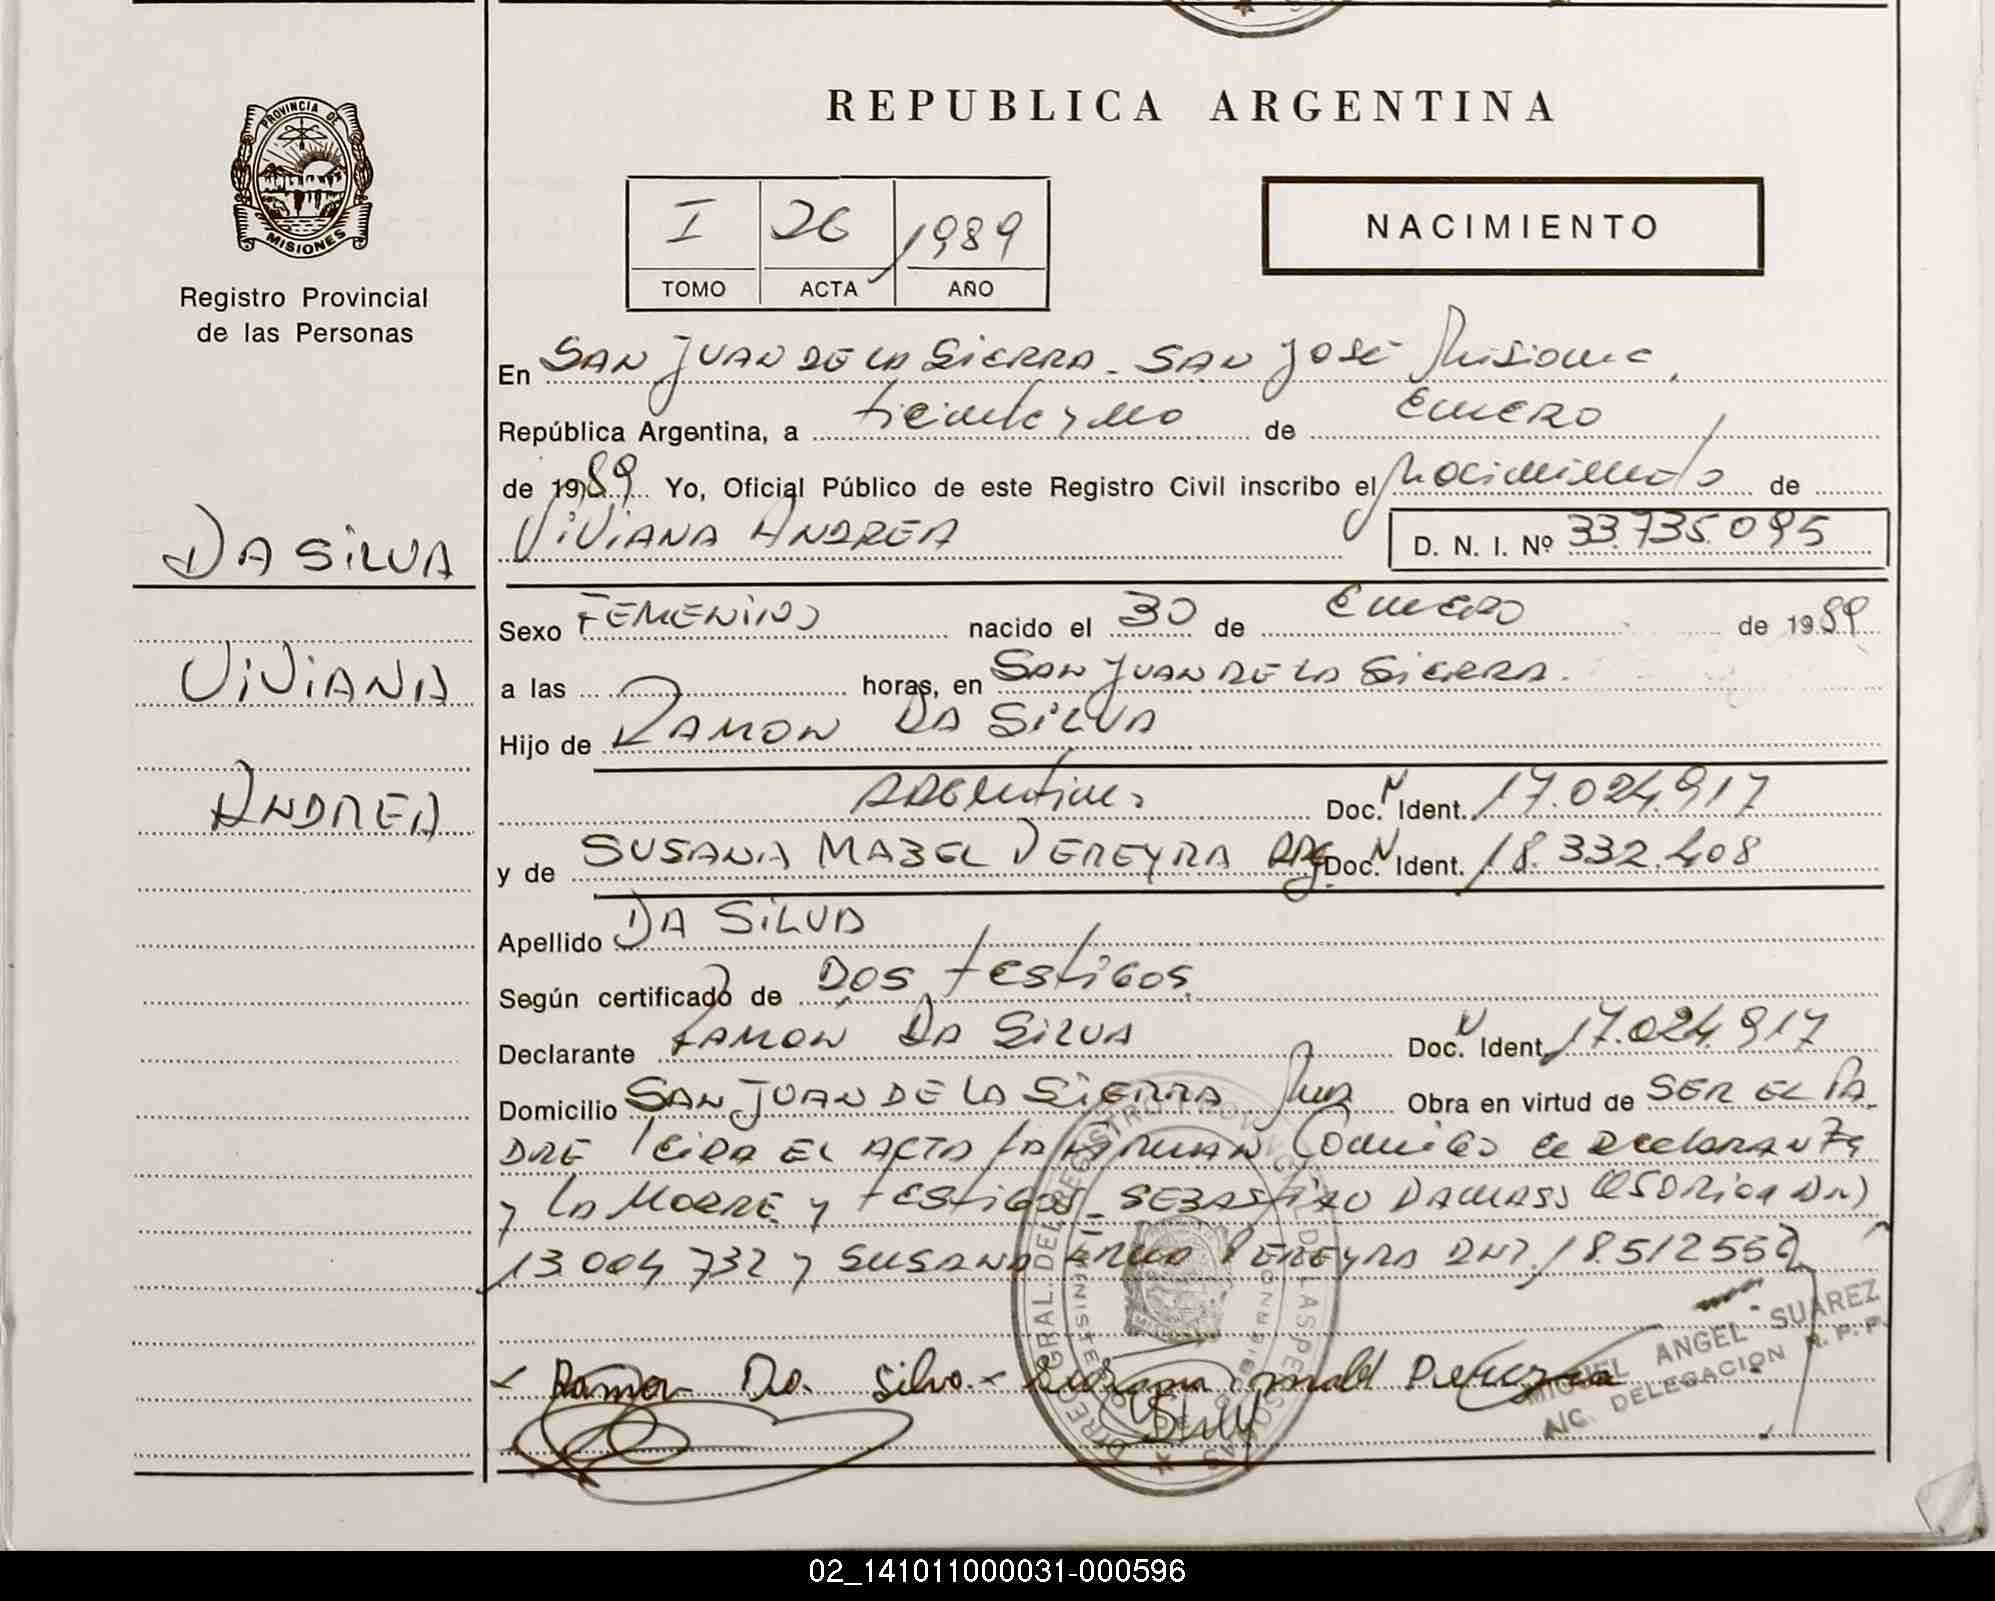 REPUBLICA ARGENTINA
PROVINCIA DE MISIONES
Registro Provincial
de las Personas
I 26 1989
TOMO ACTA AÑO
NACIMIENTO
DA SILVA
VIVIANA
ANDREA
En SAN JUAN DE LA SIERRA - SAN JOSÉ Misiones
República Argentina, a treinta y uno de ENERO
de 1989 Yo, Oficial Público de este Registro Civil inscribo el Nacimiento de
VIVIANA ANDREA D. N. I. Nº 33.735.095
Sexo FEMENINO nacido el 30 de ENERO de 1989
a las horas, en SAN JUAN DE LA SIERRA.
Hijo de RAMON DA SILVA
ARGENTINO Doc. N Ident. 17.024.917
y de SUSANA MABEL PEREYRA ARG Doc. N Ident. 18.332.408
Apellido DA SILVA
Según certificado de DOS TESTIGOS
Declarante RAMON DA SILVA Doc. N Ident. 17.024.917
Domicilio SAN JUAN DE LA SIERRA Obra en virtud de SER EL PA
DRE LEIDA EL ACTA LA FIRMAN CONMIGO EL DECLARANTE
Y LA MADRE Y TESTIGOS - DAMASO
13.004.732 Y SUSANA PEREYRA DNI. 18.512.552
Ramon Da Silva
MIGUEL ANGEL SUAREZ
A/C. DELEGACION R. P. P.
02_141011000031-000596